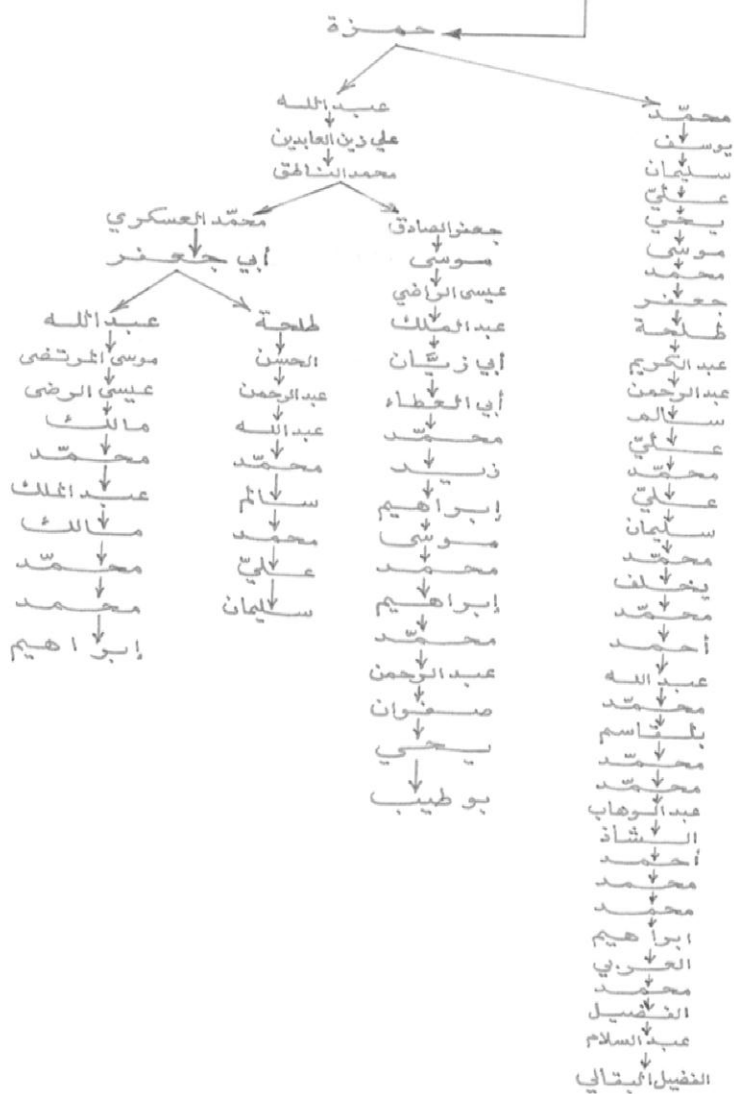 حمزة
عبد الله
علي زين العابدين
محمد الناطق
محمّد العسكري
أبي جعفر
عبد الله
موسى المرتضى
عيسى الرضى
مالك
محمّد
عبد الملك
مالك
محمّد
محمد
إبراهيم
طلحة
الحسن
عبد الرحمن
عبد الله
محمّد
سالم
محمد
عليّ
سليمان
جعفر الصادق
موسى
عيسى الراضي
عبد الملك
أبي زيّان
أبي العطاء
محمّد
زيد
إبراهيم
موسى
محمد
إبراهيم
محمّد
عبد الرحمن
صفوان
يحي
بوطيب
محمّد
يوسف
سليمان
عليّ
يحي
موسى
محمد
جعفر
طلحة
عبد الكريم
عبد الرحمن
سالم
عليّ
محمّد
عليّ
سليمان
محمّد
يخلف
محمّد
أحمد
عبد الله
محمّد
بلقاسم
محمّد
محمّد
عبد الوهاب
الشأذ
أحمد
محمد
محمد
ابراهيم
العربي
محمد
الفضيل
عبد السلام
الفضيل البقالي